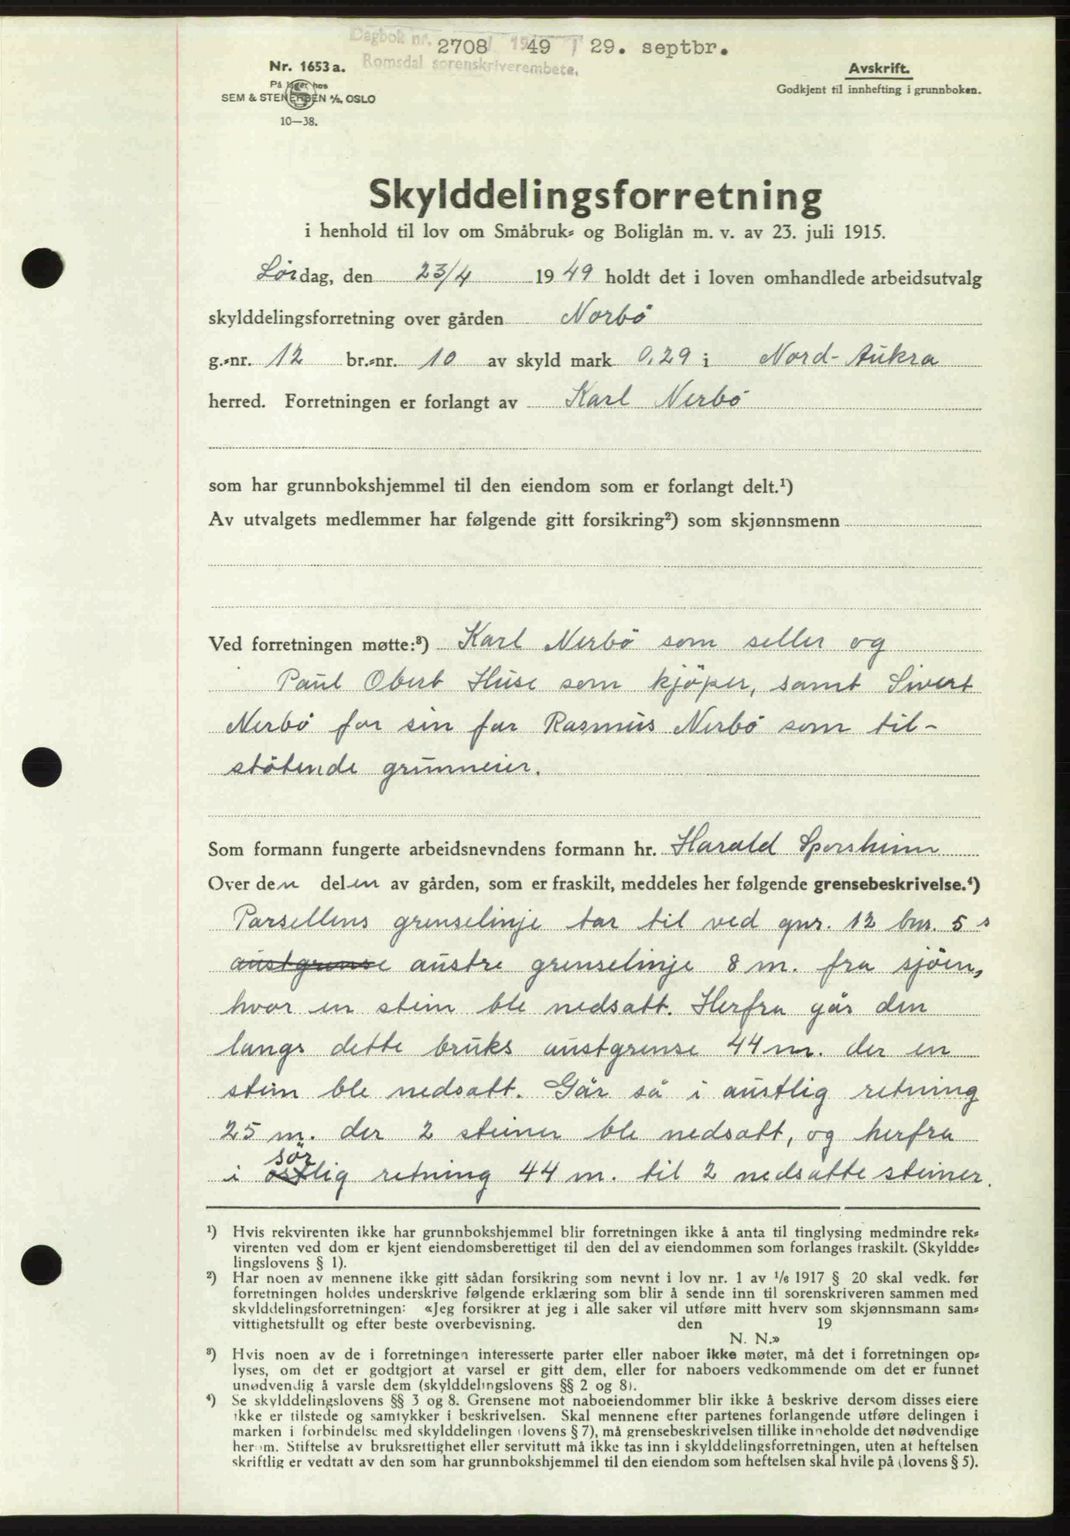 Dagbok nr. 2708 / 1949 / 29. septbr.
Romsdal sorenskriverembete.
Nr. 1653 a.
På lager hos
SEM & STENERSEN A/S. OSLO
10—38.
Avskrift.
Godkjent til innhefting i grunnboken.
Skylddelingsforretning
i henhold til lov om Småbruk- og Boliglån m. v. av 23. juli 1915.
Lördag, den 23/4 1949 holdt det i loven omhandlede arbeidsutvalg
skylddelingsforretning over gården Norbö
g.-nr. 12 br.-nr. 10 av skyld mark 0,29 i Nord-Aukra
herred. Forretningen er forlangt av Karl Nerbö
som har grunnbokshjemmel til den eiendom som er forlangt delt.¹)
Av utvalgets medlemmer har følgende gitt forsikring²) som skjønnsmenn
Ved forretningen møtte:³) Karl Nerbö som seller og
Paul Obert Huse som kjöper, samt Sivert
Nerbö for sin far Rasmus Nerbö som til-
stötende grunneier.
Som formann fungerte arbeidsnevndens formann hr. Harald Sporsheim
Over den delen av gården, som er fraskilt, meddeles her følgende grensebeskrivelse.⁴)
Parsellens grenselinje tar til ved gnr. 12 bnr. 5 s
austgrense austre grenselinje 8 m. fra sjöen,
hvor en stein ble nedsatt. Herfra går den
langs dette bruks austgrense 44 m. der en
stein ble nedsatt. Går så i austlig retning
25 m. der 2 steiner ble nedsatt, og herfra
sör
i östlig retning 44 m. til 2 nedsatte steiner.
¹) Hvis rekvirenten ikke har grunnbokshjemmel blir forretningen ikke å anta til tinglysing medmindre rek-
virenten ved dom er kjent eiendomsberettiget til den del av eiendommen som forlanges fraskilt. (Skyldde-
lingslovens § 1).
²) Har noen av mennene ikke gitt sådan forsikring som nevnt i lov nr. 1 av 1/6 1917 § 20 skal vedk. før
forretningen holdes underskrive følgende erklæring som blir å sende inn til sorenskriveren sammen med
skylddelingsforretningen: «Jeg forsikrer at jeg i alle saker vil utføre mitt hverv som skjønnsmann sam-
vittighetsfullt og efter beste overbevisning. den 19
N. N.»
³) Hvis noen av de i forretningen interesserte parter eller naboer ikke møter, må det i forretningen op-
lyses, om det er godtgjort at varsel er gitt dem, eller for naboers vedkommende om det er funnet
unødvendig å varsle dem (skylddelingslovens §§ 2 og 8).
⁴) Se skylddelingslovens §§ 3 og 8. Grensene mot naboeiendommer blir ikke å beskrive dersom disses eiere
ikke er tilstede og samtykker i beskrivelsen. Skal mennene efter partenes forlangende utføre delingen i
marken i forbindelse med skylddelingen (lovens § 7), må grensebeskrivelsen tillike inneholde det nødvendige
herom. Stiftelse av bruksrettighet eller servitutt må ikke tas inn i skylddelingsforretningen, uten at heftelsen
skriftlig er vedtatt av den som har grunnbokshjemmel til den eiendom som heftelsen skal hvile på (lovens § 5).